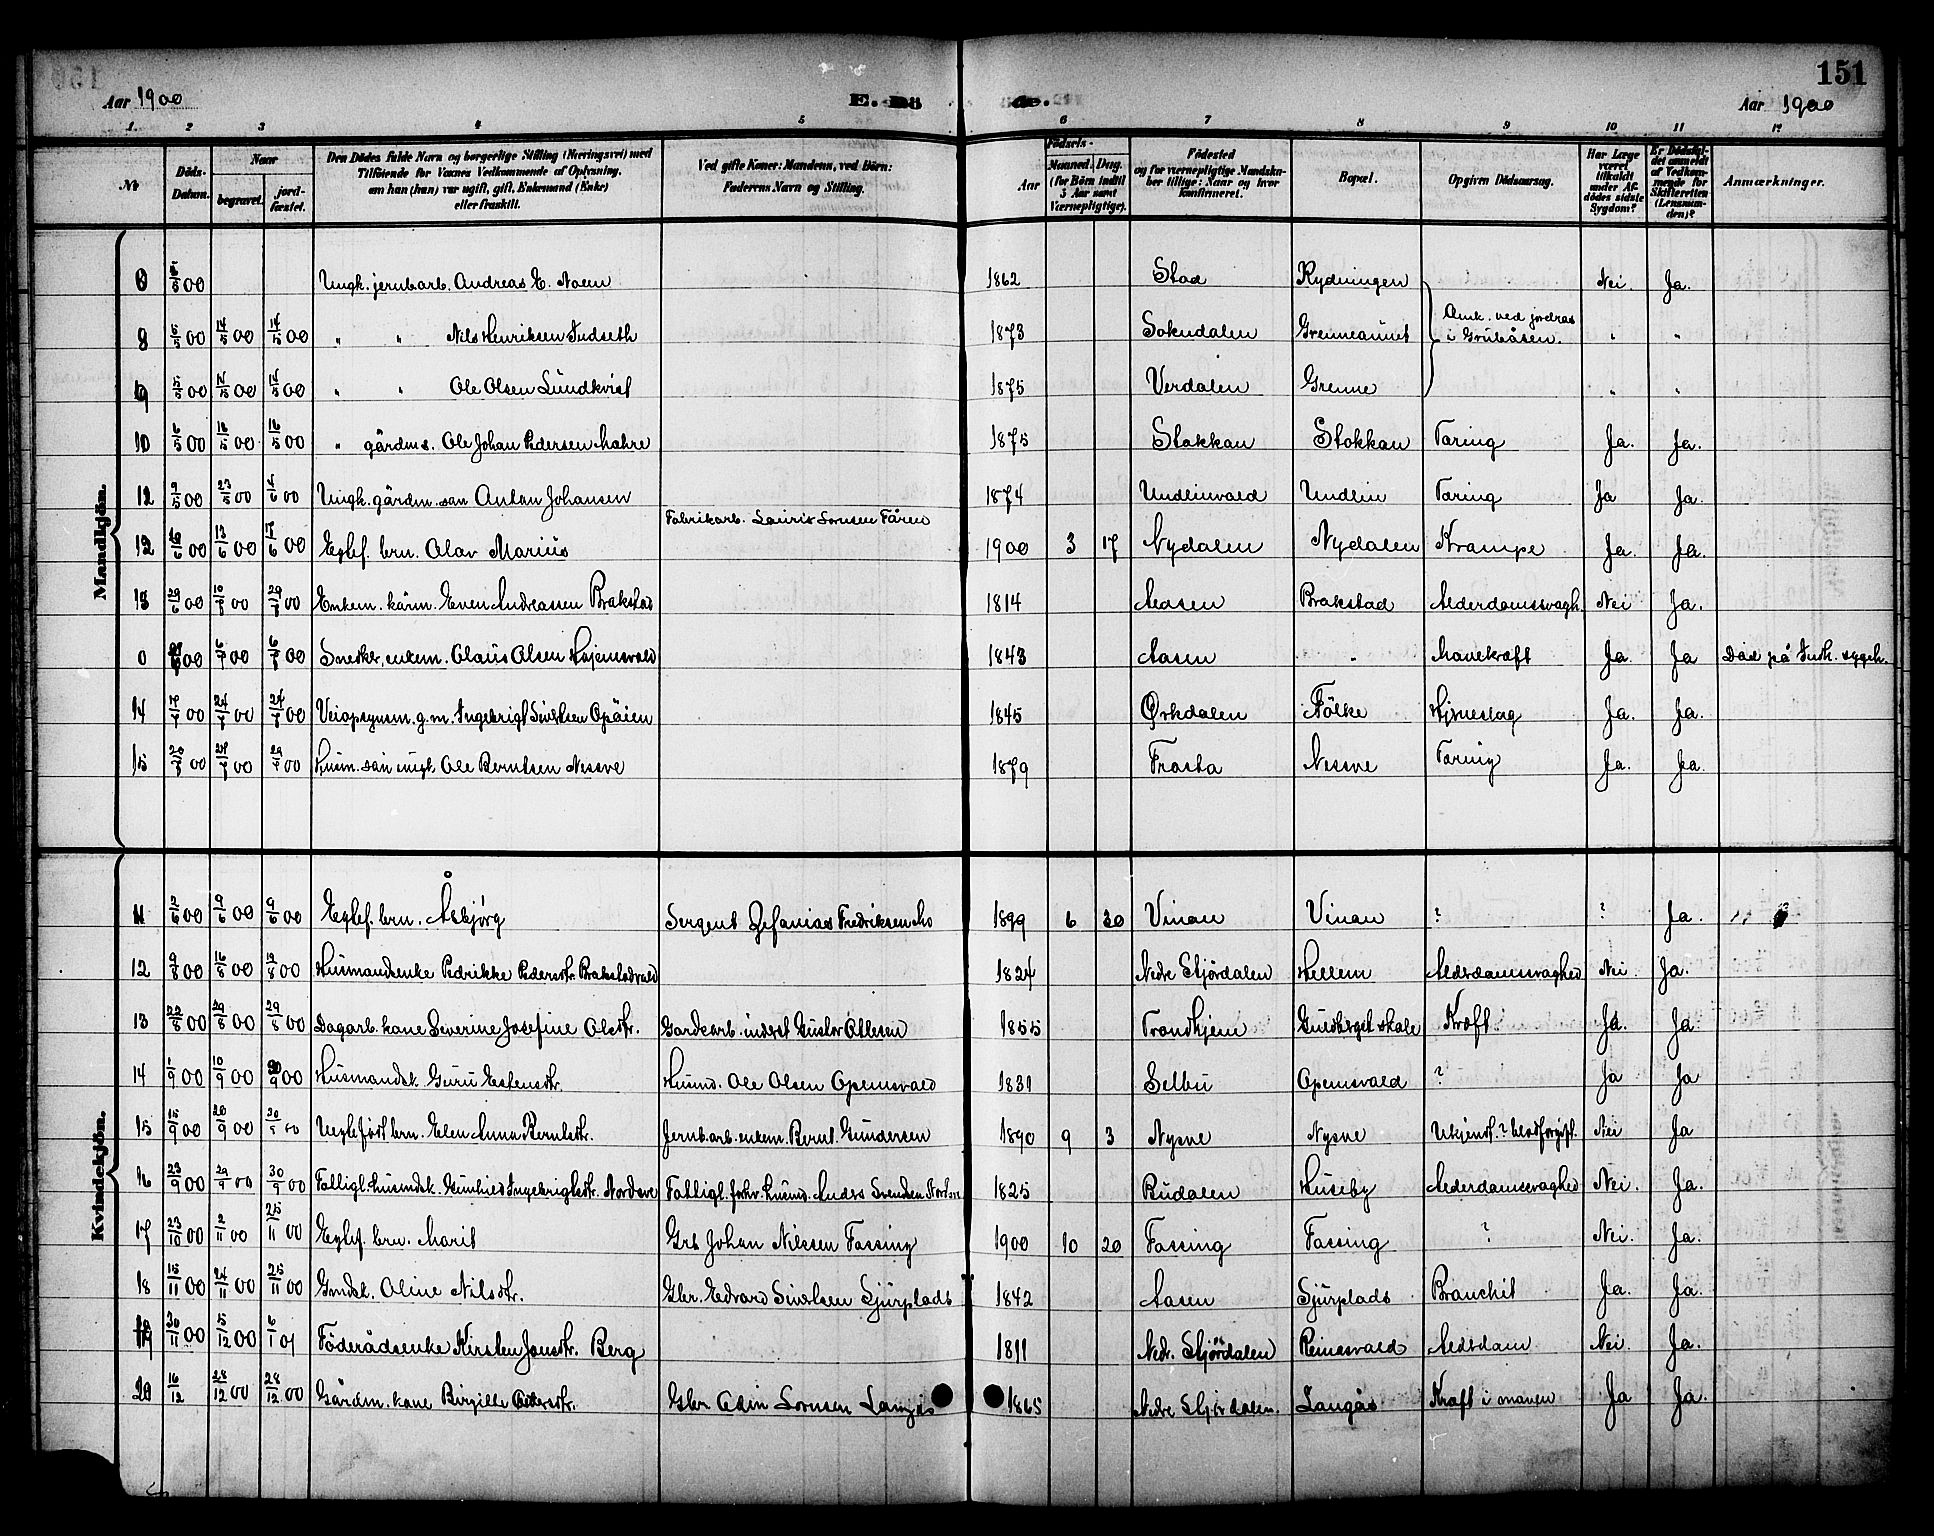 151
Aar 1900
E. Dö
de.
Aar 1900
1. 2 3 4 5 6 7 8 9 10 11 12
No
Döds-Datum.
Naar
begravet.
jordfæstet.
Den Dödes fulde Navn og borgerlige Stilling (Næringsvei) med Tilföiende for Voxnes Vedkommende af Oplysning, om han (hun) var ugift, gift, Enkemand (Enke) eller fraskilt.
Ved gifte Koner: Mandens, ved Börn: Faderens Navn og Stilling.
Fødsels-
Aar
Maaned. Dag. (for Börn indtil 3 Aar samt Værnepligtige).
Födested og for værnepligtige Mandskaber tillige: Naar og hvor konfirmeret.
Bopæl.
Opgiven Dödsaarsag.
Har Læge været tilkaldt under Afdödes sidste Sygdom?
Er Dödsfaldet anmeldt af Vedkommende for Skifteretten (Lensmanden)?
Anmærkninger.
Mandkjön.
0 5/5 00 Ungk. jernbarb. Andreas E. Moen 1862 Stod Rydningen Nei. Ja.
8 5/5 00 14/5 00 14/5 00 " " Nils Henriksen Indseth 1873 Soknedalen Grenneaunet Omk. ved jordras i Grubåsen. " "
9 5/5 00 14/5 00 14/5 00 " " Ole Olsen Lundkvist 1875 Verdalen Grenne " "
10 6/5 00 16/5 00 16/5 00 " gårdms. Ole Johan Pedersen Mahre 1875 Stokkan Stokkan Tæring Ja. Ja.
12 9/5 00 23/5 00 4/6 00 Ungk. gårdm. søn Anton Johansen 1874 Undlinvald Undlin Tæring Ja Ja.
12 6/6 00 13/6 00 17/6 00 Egtef. brn. Olav Marius Fabrikarb. Lauris Lornsen Fåren 1900 3 17 Nydalen Nydalen Krampe Ja. Ja.
13 Enkem. kårm. Even Andreassen Brakstad 1814 Aasen Brakstad Alderdomssvagh. Nei Ja.
0 Snedker, enkem. Olaus Olsen Hojemsvald 1843 Aasen " Mavekræft Ja. Ja Død på Indh. sygeh.
14 Veiopsynsm. g.m. Ingebrigt Sivertsen Opåien 1845 Ørkdalen Fölke Hjerneslag Ja. Ja.
15 Husm. søn ungk. Ole Berntsen Nessve 1879 Frosta Nessve Tæring Ja. Ja.
Kvindekjön.
11 2/6 00 9/6 00 9/6 00 Egtef. brn. Åsbjørg Sergent Zefanias Fredriksen Mo 1899 6 30 Vinan Vinan ? ? Ja.
12 9/8 00 16/8 00 19/8 00 Husmandsenke Pedrikke Pedersdtr. Brakstadvald 1824 Nedre Stjördalen Hellem Alderdomssvaghed Nei. Ja.
13 22/8 00 29/8 00 29/8 00 Dagarb. kone Severine Josefine Olesdtr. Gardearb. inderst Gustav Ottesen 1855 Trondhjem Guldberget skole Kræft Ja. Ja
14 1/9 00 10/9 00 Husmandsk. Guru Estensdtr. Husmd. Ole Olsen Opemsvald 1831 Selbu Opemsvald ? Ja Ja
15 15/9 00 20/9 00 Uegtefødt brn. Elen Anna Berntsdtr. Jernb.arb. enkem. Bernt Gundersen 1890 9 3 Nysve Nysve Ukjendt ? blodforgift. Nei Ja
16 23/9 00 29/9 00 30/9 00 Fattigl. husmdsk. Gunhild Ingebrigtsdtr. Nordsve Fattigl. forhv. husmd. Anders Svendsen 1825 Budalen Huseby Alderdomssvaghed Nei. Ja.
17 23/10 00 2/11 00 25/11 00 Egtef. brn. Marit Grb Johan Nilssen Fossing 1900 10 20 Fossing Fossing ? Nei. Ja.
18 15/11 00 24/11 00 25/11 00 Gmdsk. Oline Nilsdtr. Gbr. Edvard Sivertsen Sjurplads 1842 Aasen Sjurplads Bronchit Ja. Ja.
19 30/11 00 5/12 00 6/1 01 Föderådsenke Kirsten Jonsdtr. Berg 1811 Nedr. Stjördalen Reinsvald Aldrdom Nei. Ja.
20 16/12 28/12 00 28/12 00 Gårdm. kone Birgitte Pedersdtr. Gbr Odin Lornsen Langås 1865 Nedre Stjørdalen. Langås Kræft i maven Ja Ja.